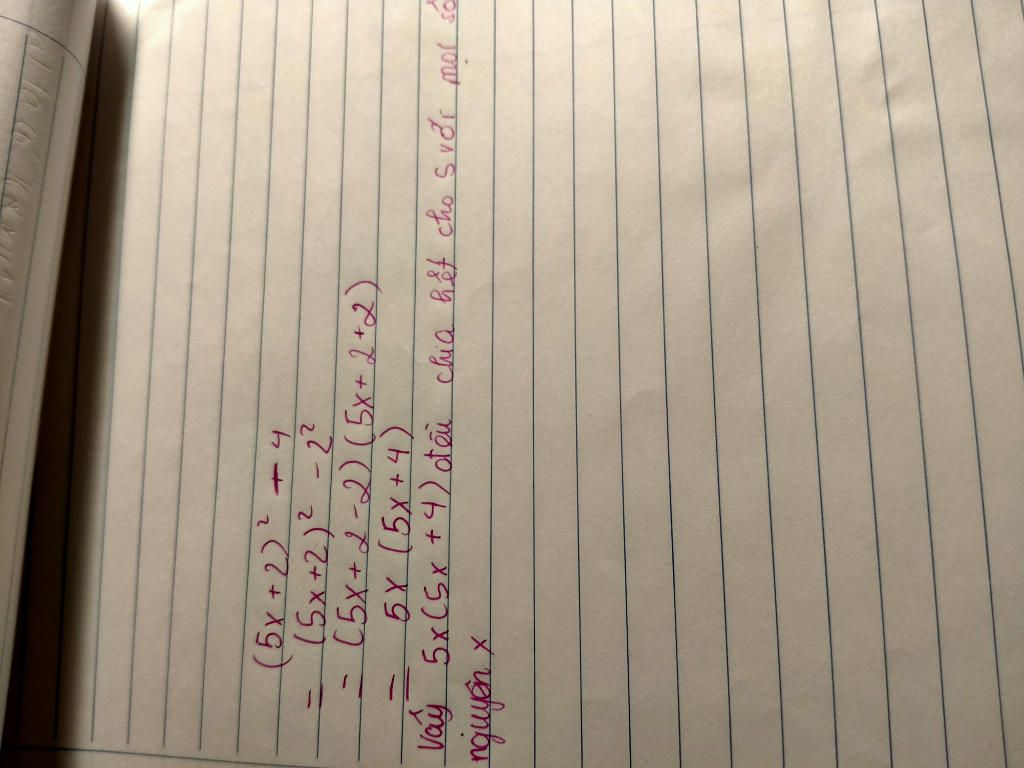 (5x + 2)² - 4
= (5x + 2)² - 2²
= (5x + 2 - 2) (5x + 2 + 2)
= 5x (5x + 4)
Vấy 5x (5x + 4) đều chia hết cho 5 với mọi số
nguyên x